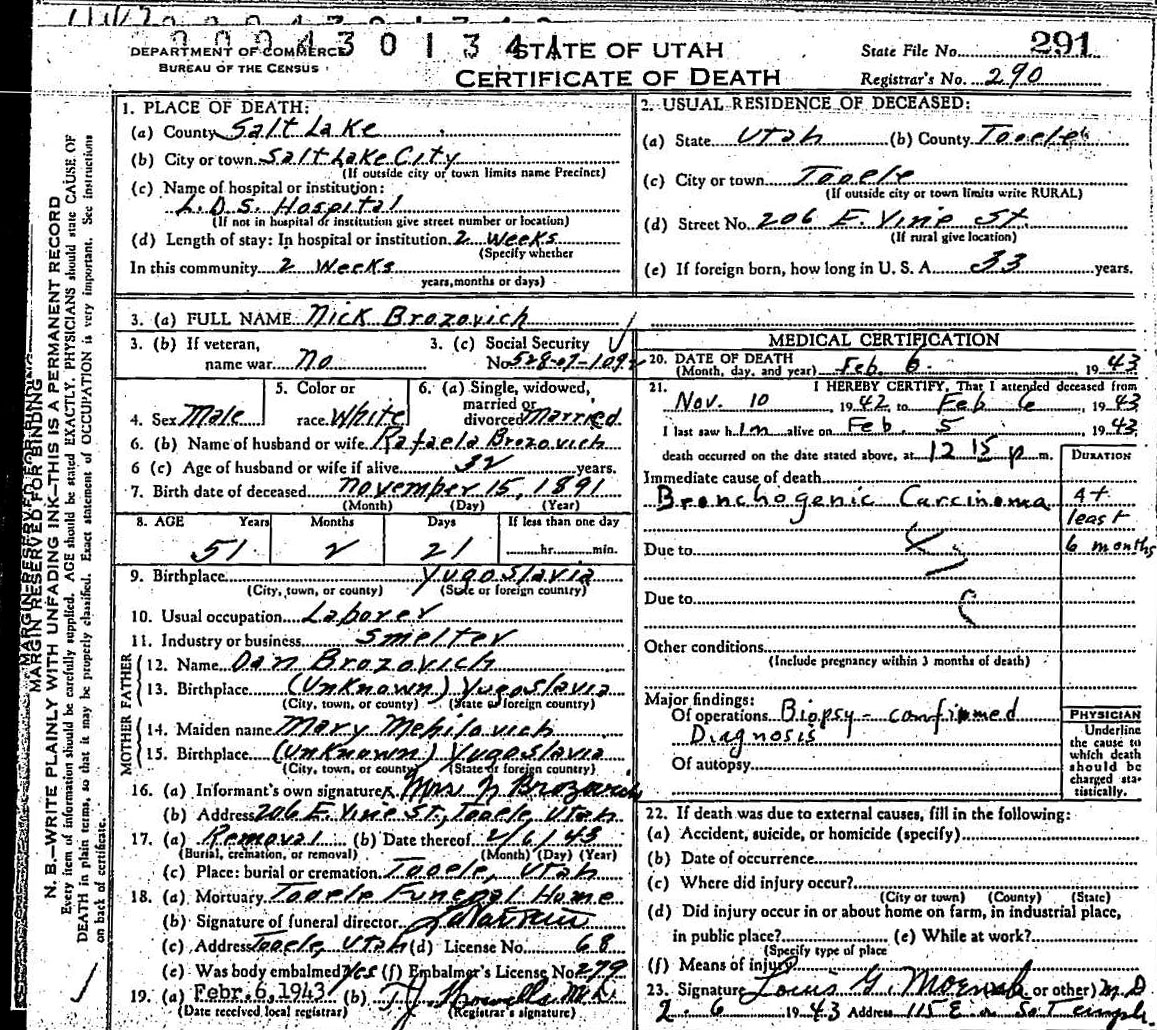 0 0 0 4 3 0 1 3 4 1
DEPARTMENT OF COMMERCE
BUREAU OF THE CENSUS
STATE OF UTAH
CERTIFICATE OF DEATH
State File No. 291
Registrar's No. 290
MARGIN RESERVED FOR BINDING
N. B.—WRITE PLAINLY WITH UNFADING INK—THIS IS A PERMANENT RECORD
Every item of information should be carefully supplied. AGE should be stated EXACTLY. PHYSICIANS should state CAUSE OF
DEATH in plain terms, so that it may be properly classified. Exact statement of OCCUPATION is very important. See instructions
on back of certificate.
1. PLACE OF DEATH:
(a) County Salt Lake
(b) City or town Salt Lake City
(If outside city or town limits name Precinct)
(c) Name of hospital or institution:
L.D.S. Hospital
(If not in hospital or institution give street number or location)
(d) Length of stay: In hospital or institution 2 weeks
(Specify whether
In this community 2 weeks
years, months or days)
2. USUAL RESIDENCE OF DECEASED:
(a) State Utah (b) County Tooele
(c) City or town Tooele
(If outside city or town limits write RURAL)
(d) Street No. 206 E. Vine St.
(If rural give location)
(e) If foreign born, how long in U. S. A. 33 years.
3. (a) FULL NAME Nick Brozovich
3. (b) If veteran,
name war No
3. (c) Social Security
No. 528-07-1092
4. Sex Male
5. Color or
race White
6. (a) Single, widowed,
married or
divorced Married
6. (b) Name of husband or wife Rafaela Brozovich
6 (c) Age of husband or wife if alive 32 years.
7. Birth date of deceased November 15, 1891
(Month) (Day) (Year)
8. AGE Years Months Days If less than one day
51 2 21 hr. min.
9. Birthplace Yugoslavia
(City, town, or county) (State or foreign country)
10. Usual occupation Laborer
11. Industry or business Smelter
FATHER
12. Name Dan Brozovich
13. Birthplace (Unknown) Yugoslavia
(City, town, or county) (State or foreign country)
MOTHER
14. Maiden name Mary Mehilovich
15. Birthplace (Unknown) Yugoslavia
(City, town, or county) (State or foreign country)
16. (a) Informant's own signature Mrs N Brozovich
(b) Address 206 E. Vine St., Tooele, Utah
17. (a) Removal (b) Date thereof 2/6/43
(Burial, cremation, or removal) (Month) (Day) (Year)
(c) Place: burial or cremation Tooele, Utah
18. (a) Mortuary Tooele Funeral Home
(b) Signature of funeral director
(c) Address Tooele, Utah (d) License No. 68
(e) Was body embalmed? Yes (f) Embalmer's License No. 279
19. (a) Febr. 6, 1943 (b) Howells M.D.
(Date received local registrar) (Registrar's signature)
MEDICAL CERTIFICATION
20. DATE OF DEATH
(Month, day, and year) Feb. 6. 1943
21. I HEREBY CERTIFY, That I attended deceased from
Nov. 10, 1942, to Feb 6, 1943
I last saw h im alive on Feb. 5, 1943
death occurred on the date stated above, at 12 15 p m.
DURATION
Immediate cause of death
Bronchogenic Carcinoma
At
least
6 months
Due to
Due to
Other conditions
(Include pregnancy within 3 months of death)
Major findings:
Of operations Biopsy - confirmed
Diagnosis
Of autopsy
PHYSICIAN
Underline
the cause to
which death
should be
charged sta-
tistically.
22. If death was due to external causes, fill in the following:
(a) Accident, suicide, or homicide (specify)
(b) Date of occurrence
(c) Where did injury occur?
(City or town) (County) (State)
(d) Did injury occur in or about home on farm, in industrial place,
in public place? (e) While at work?
(Specify type of place
(f) Means of injury
23. Signature Louis G. Moench or other) M.D.
2 - 6 1943 Address 115 E. So Temple.